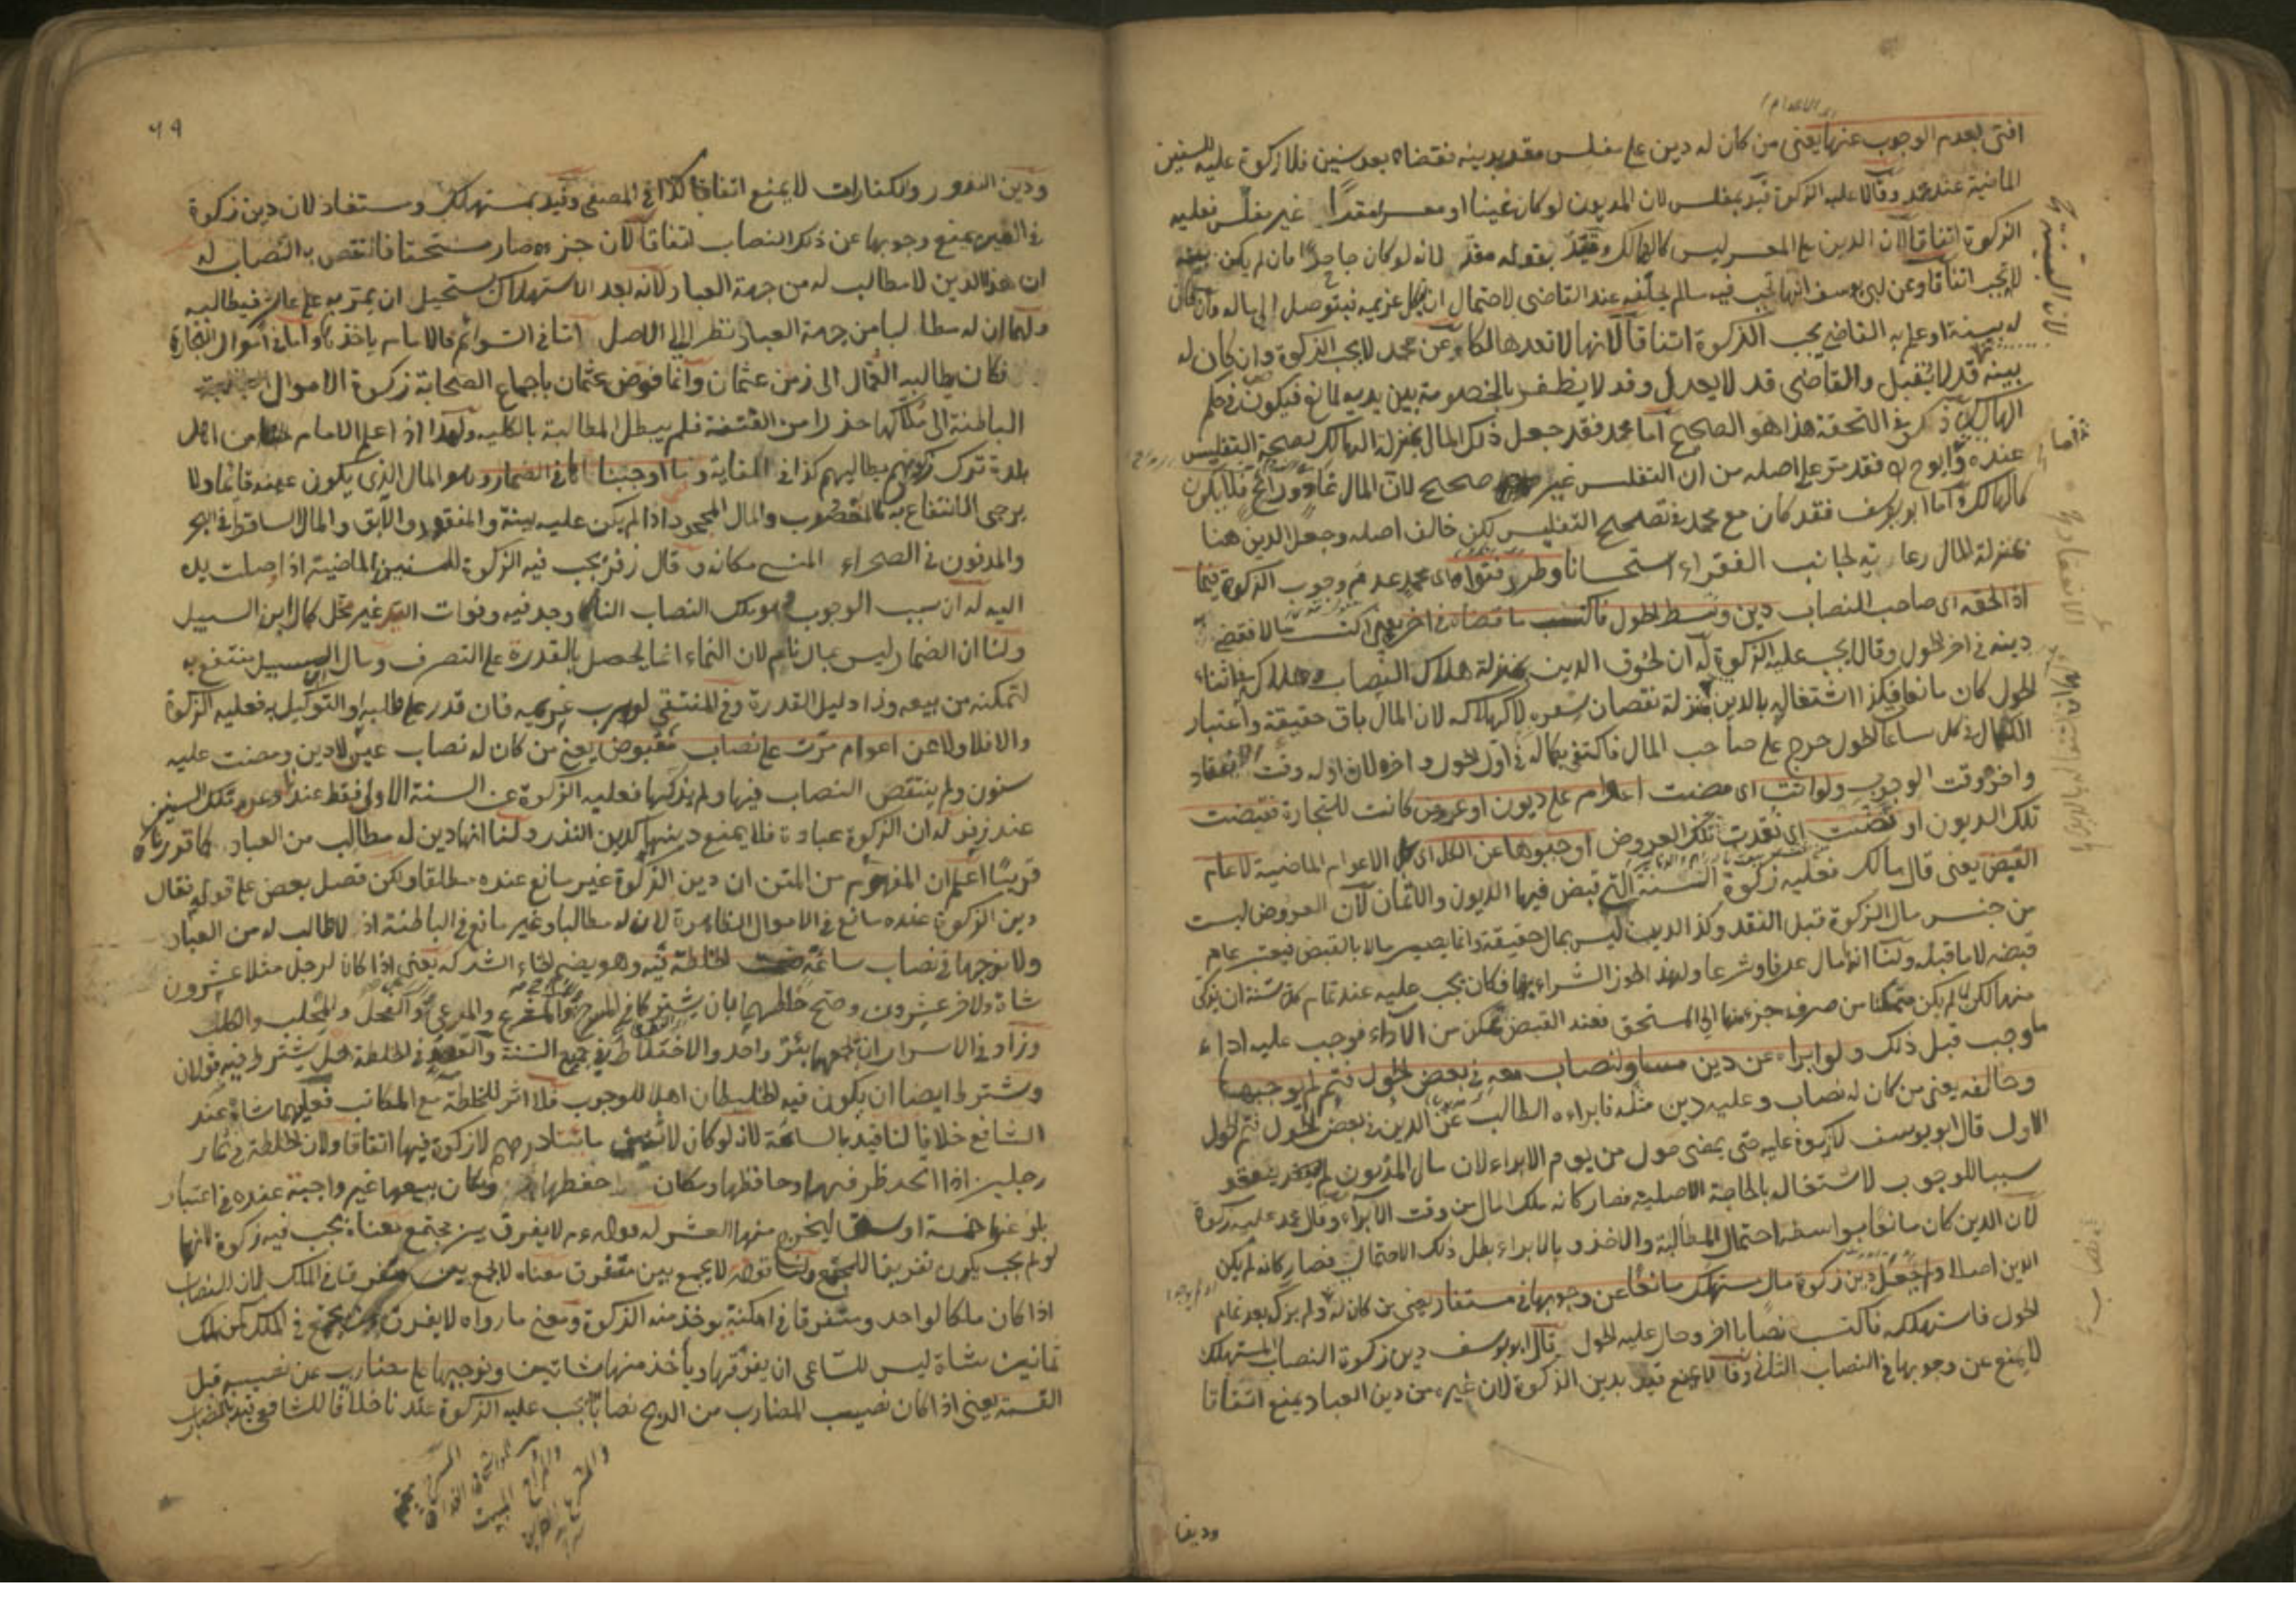 افتى بعدم الوجوب عنها يعنى من كان له دين على مفلس مقر بدينه فقضاه بعد سنين فلا زكوة عليه للسنين
الماضية عند محمد وقالا عليه الزكوة قيد بمفلس لان المديون لو كان غنيا او معسرا مقرا غير مفلس فعليه
الزكوة اتفاقا لان الدين على المعسر ليس كالهالك وقيد بقوله مقر لانه لو كان جاحدا فان لم يكن بينة
لا تجب اتفاقا وعن ابى يوسف انها تجب فيه مالم يحلفه عند القاضى لاحتمال ان نكل غريمه فيتوصل الى ماله وان كان
له بينة او علم به القاضى يجب الزكوة اتفاقا لانها لا تعد هالكا وعن محمد لا يجب الزكوة وان كان له
بينة قد لا تقبل والقاضى قد لا يعدل وقد لا يظفر بالخصومة بين يديه لمانع فيكون فى حكم
الهالك ذكر فى التحفة هذا هو الصحيح اما محمد فقد جعل ذلك المال بمنزلة الهالك لصحة التفليس
عنده وابو ح فقد مر على اصله من ان التفليس غير صحيح لان المال غاد ورائح فلا يكون
كالهالك واما ابو يوسف فقد كان مع محمد فى تصحيح التفليس لكن خالف اصله وجعل الدين هنا
بمنزلة المال رعاية لجانب الفقراء استحسانا وطرد فتواه اى محمد عدم وجوب الزكوة فيما
اذا لحقه اى صاحب النصاب دين وسط الحول فاكتسب ما قضاه فى اخر يعنى اكتسب مالا فقضى
دينه فى اخر الحول وقالا يجب عليه الزكوة له ان لحوق الدين بمنزلة هلاك النصاب وهلاكه فى اثناء
الحول كان مانعا فكذا اشتغاله بالدين بمنزلة نقصان سعره لا كهلاكه لان المال باق حقيقة واعتبار
الكمال فى كل ساعة الحول حرج على صاحب المال فاكتفى بكماله فى اول الحول واخره لان اوله وقت الانعقاد
واخره وقت الوجوب ولو اتت اى مضت اعوام على ديون او عروض كانت للتجارة فقبضت
تلك الديون او نضت اى نقدت تلك العروض اوجبوها عن الكل اى كل الاعوام الماضية لا عام
القبض يعنى قال مالك فعليه زكوة السنة التى قبض فيها الديون والاثمان لان العروض ليست
من جنس مال الزكوة قبل النقد وكذا الدين ليس بمال حقيقة وانما يصير مالا بالقبض فيعتبر عام
قبضه لا ما قبله ولنا انه مال عرفا وشرعا ولهذا جوز الشراء بها فكان يجب عليه عند تمام كل سنة ان يزكى
منها لكن لما لم يكن متمكنا من صرف جزء منها الى المستحق فعند القبض تمكن من الاداء فوجب عليه اداء
ما وجب قبل ذلك ولو ابراء عن دين مساو لنصاب معه فى بعض الحول فتم لم يوجبها
وخالفه يعنى من كان له نصاب وعليه دين مثله فابراءه الطالب عن الدين فى بعض الحول فتم الحول
الاول قال ابو يوسف لا زكوة عليه حتى يمضى حول من يوم الابراء لان مال المديون لم ينعقد
سببا للوجوب لاشتغاله بالحاجة الاصلية فصار كانه ملك المال من وقت الابراء وقال محمد عليه زكوة
لان الدين كان مانعا بواسطة احتمال المطالبة والاخذ وبالابراء بطل ذلك الاحتمال فصار كانه لم يكن
الدين اصلا وجعل دين زكوة مال مستهلك مانعا عن وجوبها فى مستفاد يعنى من كان له ولم يزك بعد تمام
الحول فاستهلكه فاكتسب نصابا اخر وحال عليه الحول قال ابو يوسف دين زكوة النصاب المستهلك
لا يمنع عن وجوبها فى النصاب الثانى وقالا يمنع قيد بدين الزكوة لان غيره من دين العباد يمنع اتفاقا
ودين
٦٩
ودين النذور والكفارات لا يمنع اتفاقا كذا فى المصفى وقيد بمستهلك ومستفاد لان دين زكوة
فى العين يمنع وجوبها عن ذلك النصاب اتفاقا لان جزءه صار مستحقا فانتقص به النصاب له
ان هذا الدين لا مطالب له من جهة العباد لانه بعد الاستهلاك يستحيل ان يمر به على عاشر فيطالبه
ولهما ان له مطالبا من جهة العباد نظرا الى الاصل اما فى السوائم فالامام ياخذ واما فى اموال التجارة
فكان يطالبه العمال الى زمن عثمان وانما فوض عثمان باجماع الصحابة زكوة الاموال
الباطنة الى ملاكها حذرا من الفتنة فلم يبطل المطالبة بالكلية ولهذا اذا علم الامام من اهل
بلدة ترك زكوتهم يطالبهم كذا فى الغاية وما اوجبنا فى الضمار وهو المال الذى يكون عينه قائما ولا
يرجى الانتفاع به كالمغصوب والمال المجحود اذا لم يكن عليه بينة والمفقود والآبق والمال الساقط فى البحر
والمدفون فى الصحراء المنسى مكانه وقال زفر يجب فيه الزكوة للسنين الماضية اذا وصلت يده
اليه له ان سبب الوجوب هو ملك النصاب النامى وجد فيه وفوات اليد غير مخل كمال ابن السبيل
ولنا ان الضمار ليس بمال نام لان النماء انما يحصل بالقدرة على التصرف ومال ابن السبيل ينتفع به
لتمكنه من بيعه وذا دليل القدرة وفى المنتقى لو هرب غريمه فان قدر على طلبه او التوكيل به فعليه الزكوة
والا فلا ولا عن اعوام مرت على نصاب مقبوض يعنى من كان له نصاب عين لا دين ومضت عليه
سنون ولم ينتقص النصاب فيها ولم يزكها فعليه الزكوة عن السنة الاولى فقط عندنا وعن تلك السنين
عند زفر له ان الزكوة عبادة فلا يمنع دينها كدين النذر ولنا انها دين له مطالب من العباد كما قررناه
قريبا اعلم ان المفهوم من المتن ان دين الزكوة غير مانع عنده مطلقا ولكن فصل بعض على قوله فقال
دين الزكوة عنده مانع فى الاموال الظاهرة لان له مطالبا وغير مانع فى الباطنة اذ لا طالب له من العباد
ولا نوجبها فى نصاب سائمة صحت الخلطة فيه وهو بضم الخاء الشركة يعنى اذا كان لرجل مثلا عشرون
شاة ولاخر عشرون وصح خلطهما بان يشتركا فى المسرح والمشرع والمرعى والفحل والمحلب والكلب
وزاد فى الاسرار ان يجمعهما بئر واحد والاختلاط فى جميع السنة والقصد فى الخلطة هل يشترط فيه قولان
ويشترط ايضا ان يكون فيه الخليطان اهلا للوجوب فلا اثر للخلطة مع المكاتب فعليهما شاة عند
الشافع خلافا لنا قيد بالسائمة لانه لو كان لاثنين مائتا درهم لا زكوة فيها اتفاقا ولان الخلطة فى ثمار
رجلين اذا اتحد ظرفها وحافظها ومكان حفظها ومكان بيعها غير واجبة عنده فى اعتبار
بلوغها خمسة اوسق ليخرج منها العشر له قوله ءم لا يفرق بين مجتمع معناه يجب فيه زكوة لانها
لو لم يجب يكون تفريقا للمجتمع ولنا قوله لا يجمع بين متفرق معناه لا يجمع بين متفرق فى الملك لان النصاب
اذا كان ملكا لواحد ومتفرقا فى امكنة يوخذ منه الزكوة ومعنى ما رواه لا يفرق بين مجتمع فى الملك كمن ملك
ثمانين شاة ليس للساعى ان يفرقها ويأخذ منها شاتين ونوجبها على مضارب عن نصيبه قبل
القسمة يعنى اذا كان نصيب المضارب من الربح نصابا يجب عليه الزكوة عندنا خلافا للشافعى قيد بالمضارب